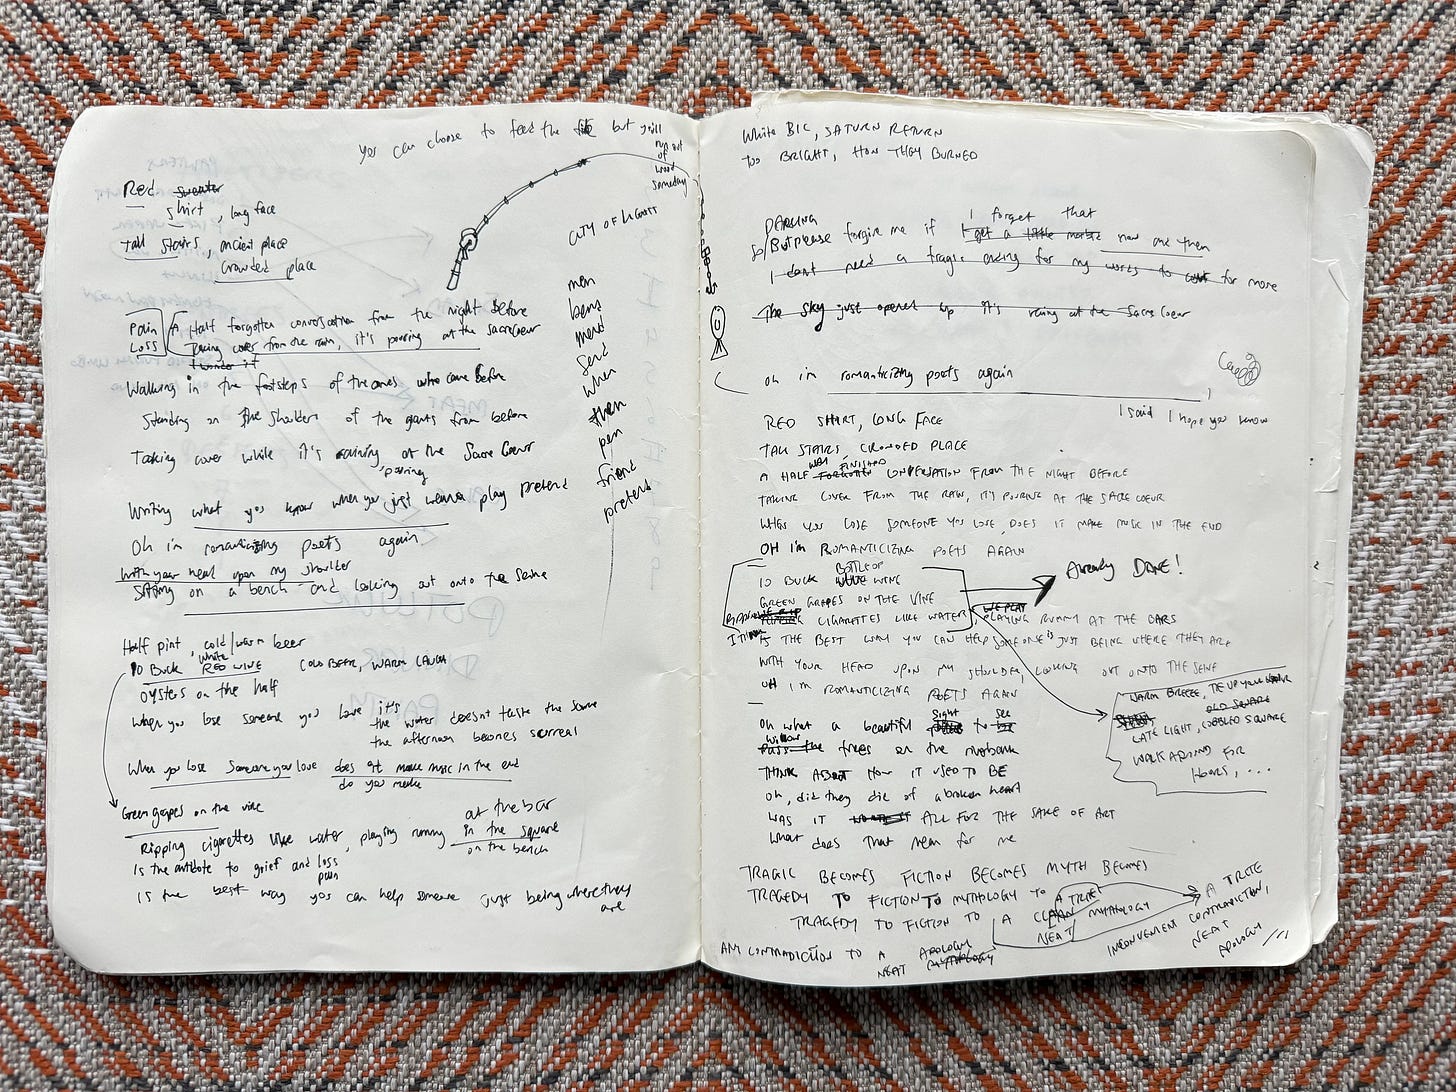 you can choose to feed the fire but you'll
run out
of
wood
someday
Red sweater
shirt, long face
Tall stairs, ancient place
crowded place
CITY OF LIGHT
Pain
Loss
A Half forgotten conversation from the night before
Taking cover from the rain, it's pouring at the Sacre Coeur
I wonder if
Walking in the footsteps of the ones who came before
Standing on the shoulders of the giants from before
Taking cover while it's raining at the Sacre Coeur
pouring
Writing what you know when you just wanna play pretend
Oh i'm romanticizing poets again
With your head upon my shoulder
Sitting on a bench and looking out onto the Seine
men
bend
mend
send
when
then
pen
friend
pretend
Half pint, cold/warm beer
white
10 Buck RED WINE COLD BEER, WARM LAUGH
oysters on the half
When you lose someone you love it's
the water doesn't taste the same
the afternoon becomes surreal
When you lose someone you love does it make music in the end
do you make
Green grapes on the vine
at the bar
Ripping cigarettes like water, playing rummy in the square
on the bench
is the antidote to grief and loss
pain
is the best way you can help someone just being where they
are
White BIC, SATURN RETURN
TOO BRIGHT, HOW THEY BURNED
DARLING
I forget that
So/But please forgive me if I get a little now and then
I don't need a tragic ending for my words to for more
The sky just opened up it's raining at the Sacre Coeur
oh i'm romanticizing poets again
I said I hope you know
RED SHIRT, LONG FACE
TALL STAIRS, CROWDED PLACE
WAY FINISHED
A HALF FORGOTTEN CONVERSATION FROM THE NIGHT BEFORE
TAKING COVER FROM THE RAIN, IT'S POURING AT THE SACRE COEUR
WHEN YOU LOSE SOMEONE YOU LOVE, DOES IT MAKE MUSIC IN THE END
OH I'M ROMANTICIZING POETS AGAIN
BOTTLE OF
10 BUCK WHITE WINE
Already DONE!
GREEN GRAPES ON THE VINE
WE PLAY
CIGARETTES LIKE WATER, PLAYING RUMMY AT THE BARS
IS THE BEST WAY YOU CAN HELP SOMEONE IS JUST BEING WHERE THEY ARE
WITH YOUR HEAD UPON MY SHOULDER, LOOKING OUT ONTO THE SEINE
OH I'M ROMANTICIZING POETS AGAIN
WARM BREEZE, TIE UP YOUR HAIR
OLD SQUARE
LATE LIGHT, COBBLED SQUARE
WALK AROUND FOR
HOURS, ...
Sight see
Oh what a beautiful to be
Willow
Pass the trees on the riverbank
THINK ABOUT HOW IT USED TO BE
Oh, did they die of a broken heart
WAS IT ALL FOR THE SAKE OF ART
What does that mean for me
TRAGIC BECOMES FICTION BECOMES MYTH BECOMES
TRAGEDY TO FICTION TO MYTHOLOGY TO A TRITE
TRAGEDY TO FICTION TO A CLEAN MYTHOLOGY
NEAT
A TRITE
INCONVENIENT CONTRADICTION,
NEAT
APOLOGY
ANY CONTRADICTION TO A APOLOGY
NEAT MYTHOLOGY